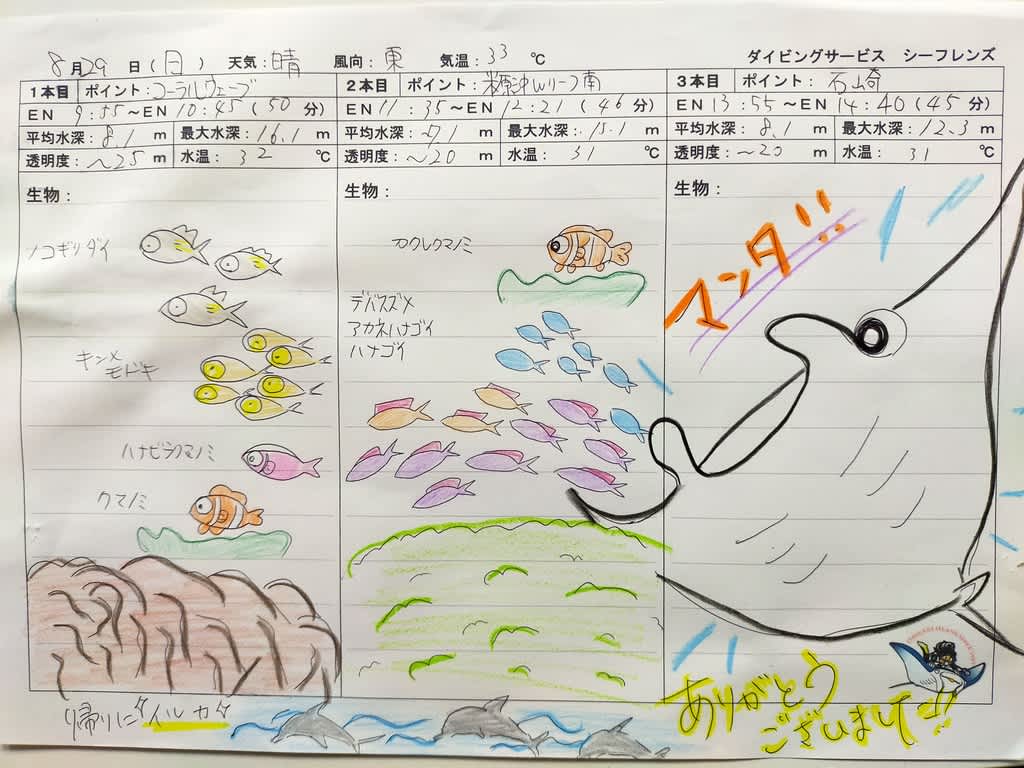 8月29日(日) 天気:晴 風向:東 気温:33℃ ダイビングサービス シーフレンズ
1本目 ポイント:コーラルウェーブ
EN 9:55～EN 10:45(50分)
平均水深:8.1m 最大水深:16.1m
透明度:～25m 水温:32℃
生物:
ノコギリダイ
キンメ
モドキ
ハナビラクマノミ
クマノミ
2本目 ポイント:米原沖Wリーフ南
EN 11:35～EN 12:21(46分)
平均水深:7.1m 最大水深:15.1m
透明度:～20m 水温:31℃
生物:
カクレクマノミ
デバスズメ
アカネハナゴイ
ハナゴイ
3本目 ポイント:石崎
EN 13:55～EN 14:40(45分)
平均水深:8.1m 最大水深:12.3m
透明度:～20m 水温:31℃
生物:
マンタ!!
帰りに"イルカ"
ありがとう
ございました!!